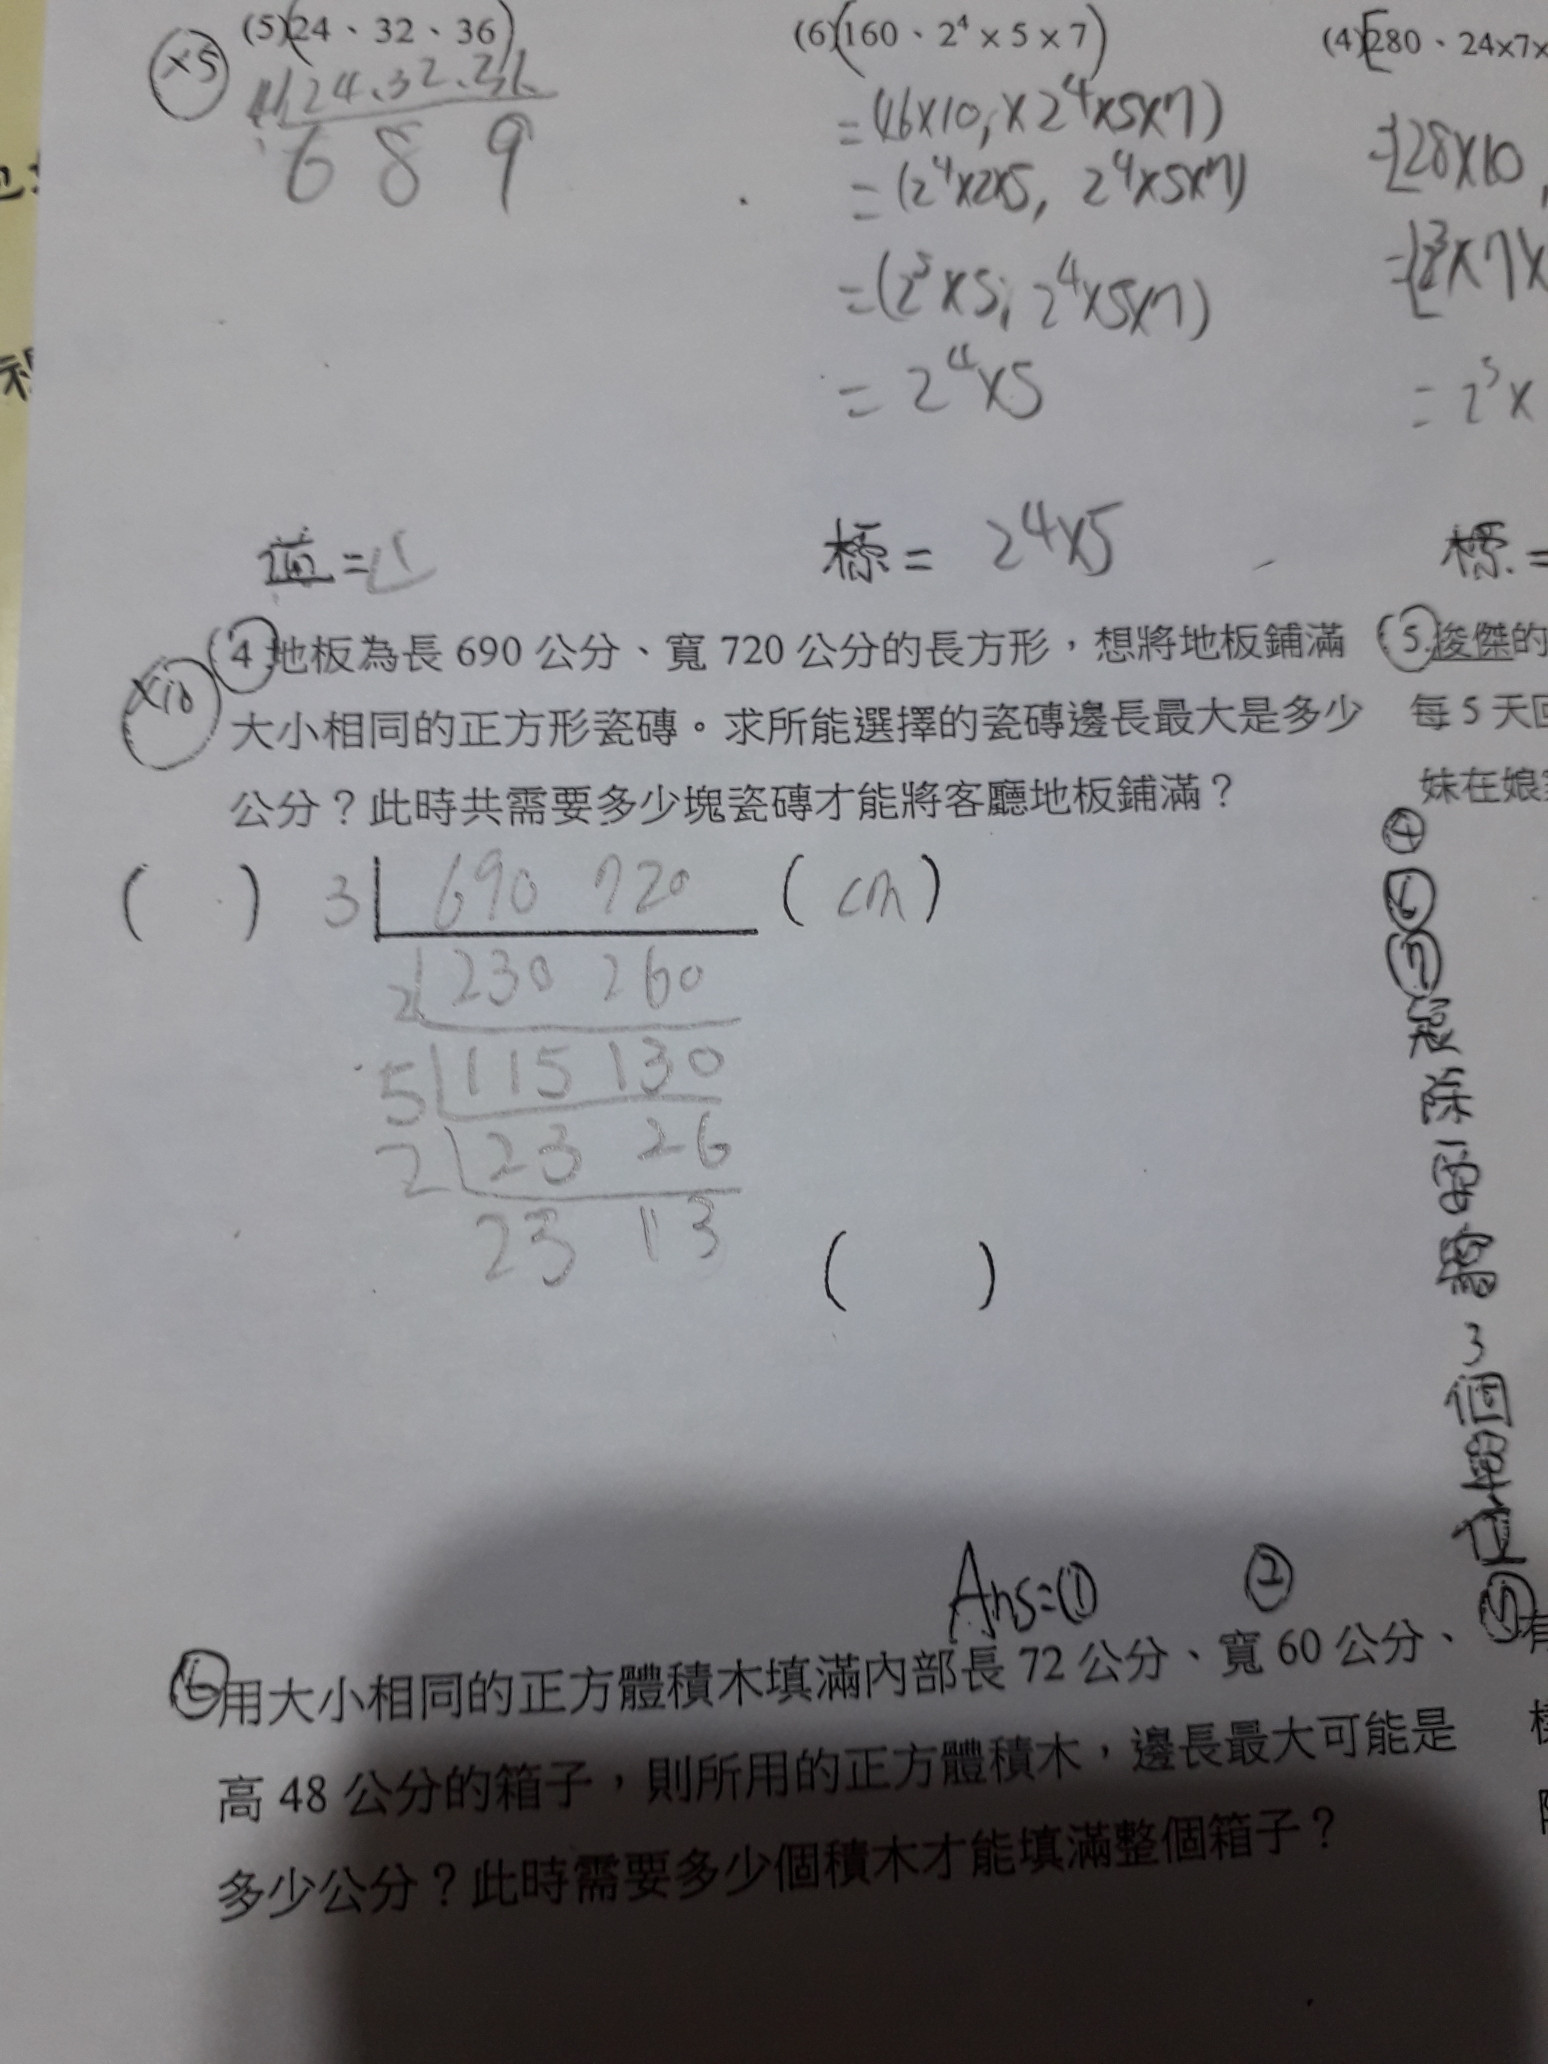 (5)(24、32、36)
×5
4 24、32、36
6 8 9
(6)(160、2⁴×5×7)
=(16×10,×2⁴×5×7)
=(2⁴×2×5, 2⁴×5×7)
=(2⁵×5, 2⁴×5×7)
=2⁴×5
標= 2⁴×5
(4)[280、24×7×
=[28×10,
=2³×
標.=
×10
4 地板為長 690 公分、寬 720 公分的長方形，想將地板鋪滿
大小相同的正方形瓷磚。求所能選擇的瓷磚邊長最大是多少
公分？此時共需要多少塊瓷磚才能將客廳地板鋪滿？
( ) 3 690 720 (cm)
2 230 260
5 115 130
2 23 26
23 13
( )
Ans=① ②
5.俊傑的
每 5 天回
妹在娘家
④
⑥
⑦
短
除
要
寫
3
個
單
位
⑥用大小相同的正方體積木填滿內部長 72 公分、寬 60 公分、
高 48 公分的箱子，則所用的正方體積木，邊長最大可能是
多少公分？此時需要多少個積木才能填滿整個箱子？
有